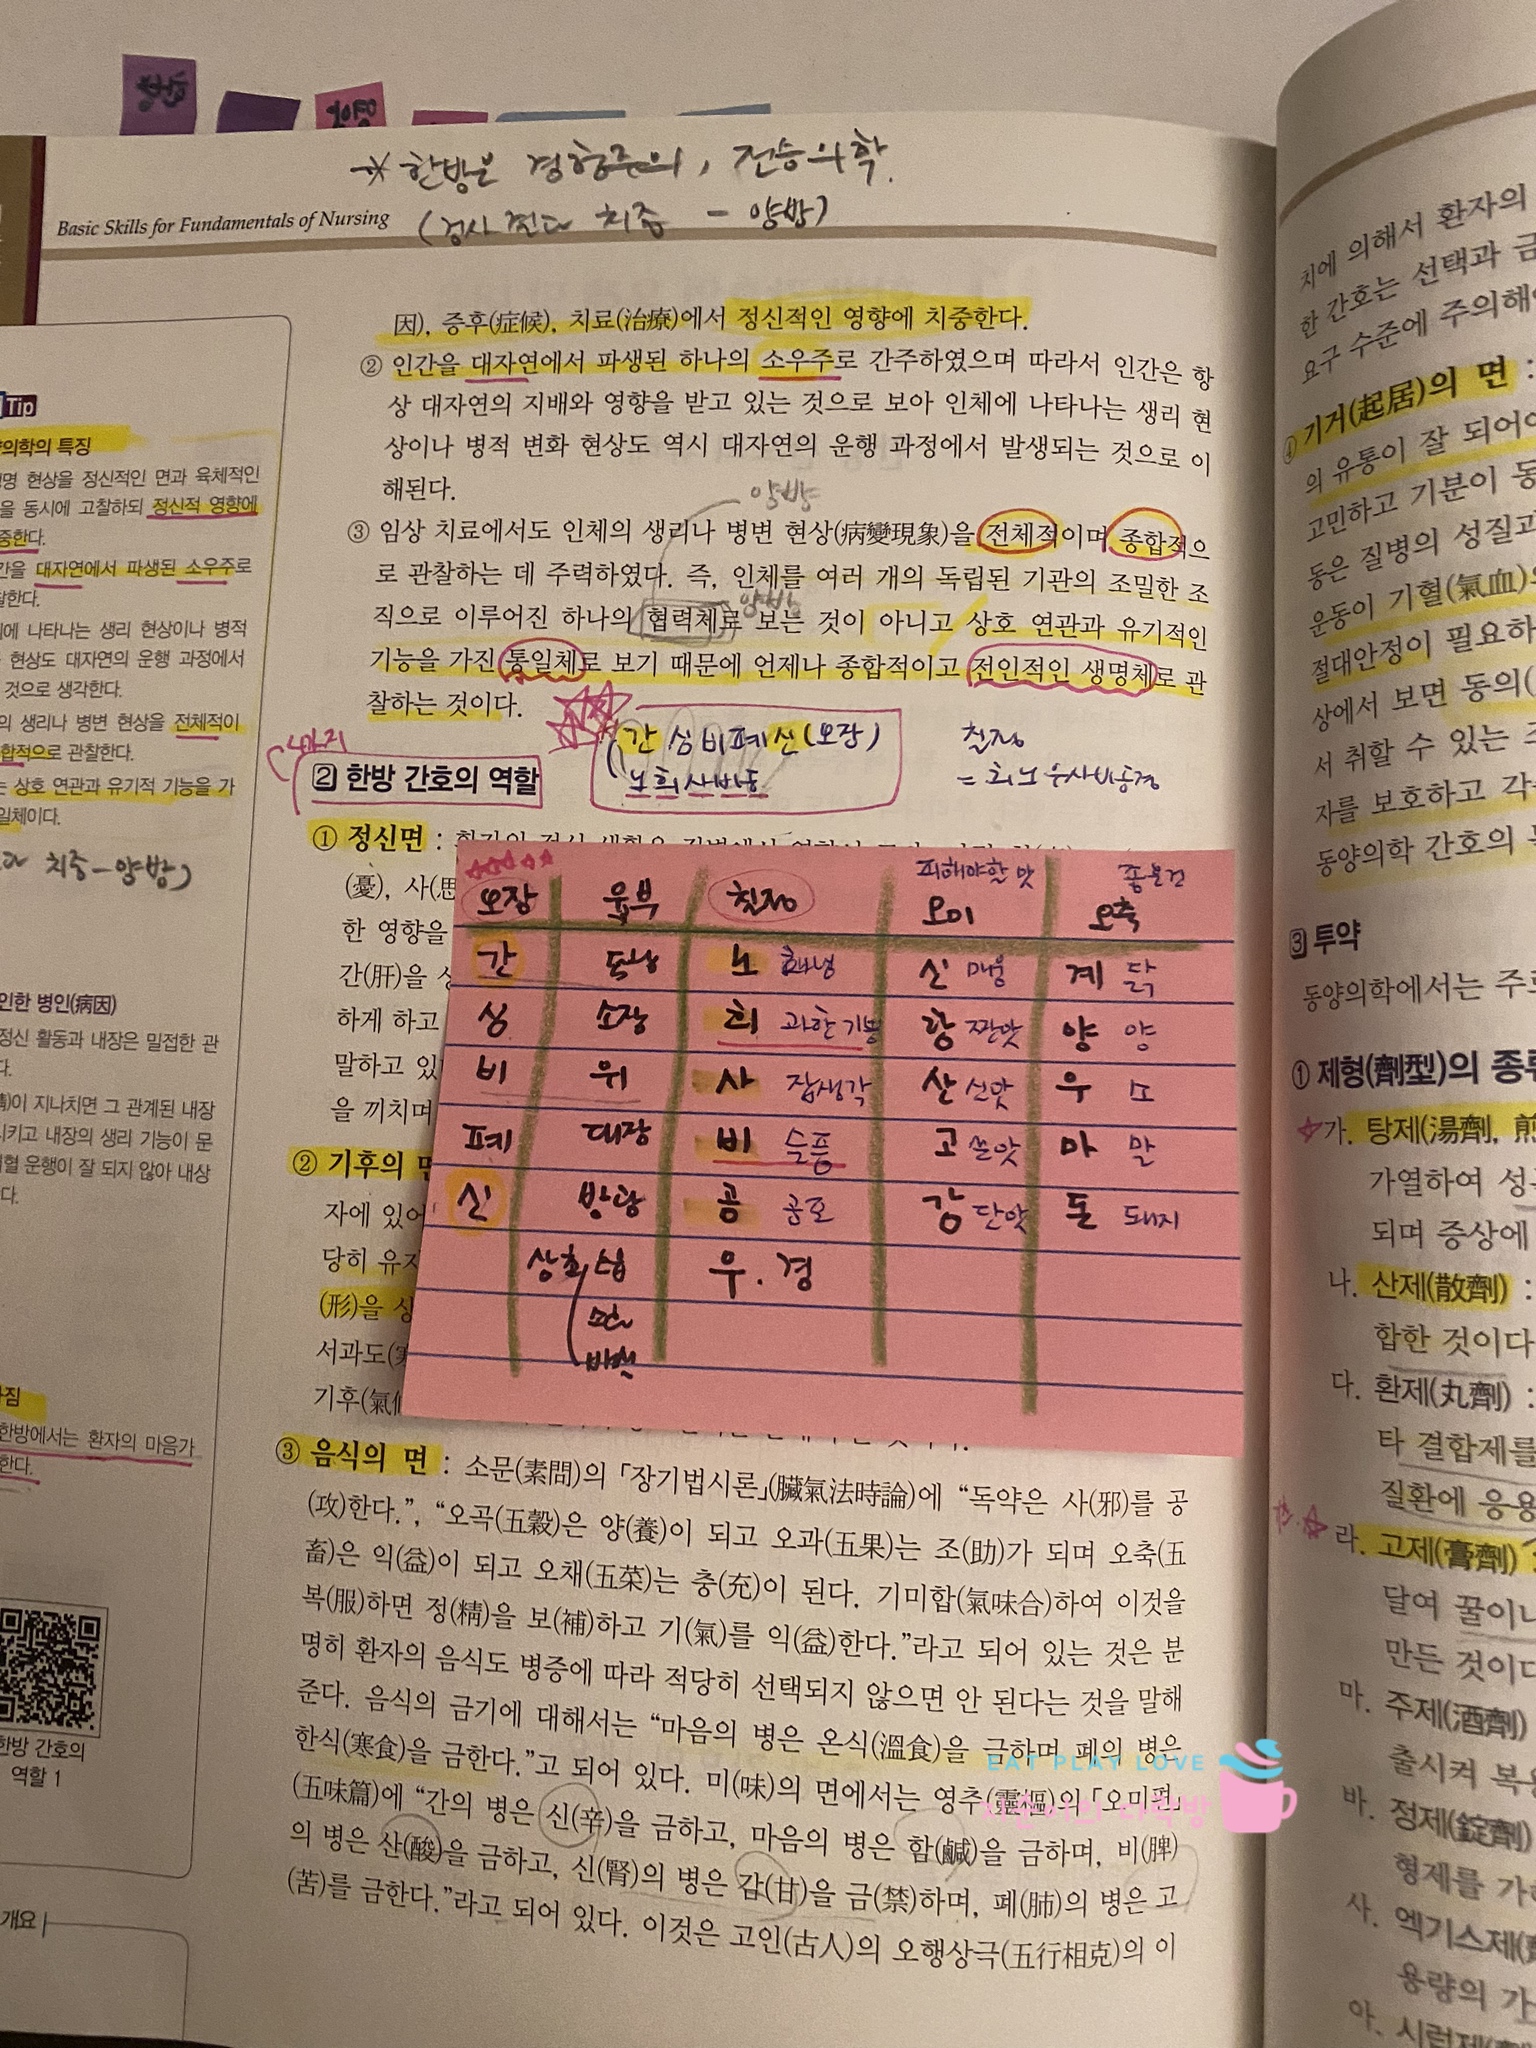 한방
양
※ 한방은 경험주의, 전승의학.
Basic Skills for Fundamentals of Nursing
(검사 진단 치중 - 양방)
因), 증후(症候), 치료(治療)에서 정신적인 영향에 치중한다.
② 인간을 대자연에서 파생된 하나의 소우주로 간주하였으며 따라서 인간은 항
상 대자연의 지배와 영향을 받고 있는 것으로 보아 인체에 나타나는 생리 현
상이나 병적 변화 현상도 역시 대자연의 운행 과정에서 발생되는 것으로 이
해된다.
양방
③ 임상 치료에서도 인체의 생리나 병변 현상(病變現象)을 전체적이며 종합적으
로 관찰하는 데 주력하였다. 즉, 인체를 여러 개의 독립된 기관의 조밀한 조
양방
직으로 이루어진 하나의 협력체로 보는 것이 아니고 상호 연관과 유기적인
기능을 가진 통일체로 보기 때문에 언제나 종합적이고 전인적인 생명체로 관
찰하는 것이다.
(간 심 비 폐 신 (오장)
노 희 사 비 공
칠정
= 희노우사비공경
4가지
2 한방 간호의 역할
① 정신면 :
(憂), 사(思
한 영향을
간(肝)을 상
하게 하고
말하고 있
을 끼치며
② 기후의 면
자에 있어
당히 유지
(形)을 상
서과도(寒
기후(氣候
피해야할 맛 좋은건
오장 육부 칠정 오미 오축
간 담낭 노 화냄 신 매운 계 닭
심 소장 희 과한기쁨 함 짠맛 양 양
비 위 사 잡생각 산 신맛 우 소
폐 대장 비 슬픔 고 쓴맛 마 말
신 방광 공 공포 감 단맛 돈 돼지
우 . 경
③ 음식의 면 : 소문(素問)의 「장기법시론」(臟氣法時論)에 “독약은 사(邪)를 공
(攻)한다.”, “오곡(五穀)은 양(養)이 되고 오과(五果)는 조(助)가 되며 오축(五
畜)은 익(益)이 되고 오채(五菜)는 충(充)이 된다. 기미합(氣味合)하여 이것을
복(服)하면 정(精)을 보(補)하고 기(氣)를 익(益)한다.”라고 되어 있는 것은 분
명히 환자의 음식도 병증에 따라 적당히 선택되지 않으면 안 된다는 것을 말해
준다. 음식의 금기에 대해서는 “마음의 병은 온식(溫食)을 금하며 폐의 병은
한식(寒食)을 금한다.”고 되어 있다. 미(味)의 면에서는 영추(靈樞)의 「오미편
(五味篇)에 “간의 병은 신(辛)을 금하고, 마음의 병은 함(鹹)을 금하며, 비(脾)
의 병은 산(酸)을 금하고, 신(腎)의 병은 감(甘)을 금(禁)하며, 폐(肺)의 병은 고
(苦)를 금한다.”라고 되어 있다. 이것은 고인(古人)의 오행상극(五行相克)의 이
Tip
의학의 특징
명 현상을 정신적인 면과 육체적인
을 동시에 고찰하되 정신적 영향에
중한다.
간을 대자연에서 파생된 소우주로
찰한다.
에 나타나는 생리 현상이나 병적
현상도 대자연의 운행 과정에서
것으로 생각한다.
의 생리나 병변 현상을 전체적이
합적으로 관찰한다.
는 상호 연관과 유기적 기능을 가
일체이다.
치중-양방)
인한 병인(病因)
정신 활동과 내장은 밀접한 관
다.
이 지나치면 그 관계된 내장
시키고 내장의 생리 기능이 문
혈 운행이 잘 되지 않아 내상
다.
한방에서는 환자의 마음가
한다.
한방 간호의
역할 1
개요
치에 의해서 환자의
한 간호는 선택과 금
요구 수준에 주의해야
④ 기거(起居)의 면 :
의 유통이 잘 되어야
고민하고 기분이 동
동은 질병의 성질과
운동이 기혈(氣血)의
절대안정이 필요하
상에서 보면 동의(
서 취할 수 있는 조
자를 보호하고 각
동양의학 간호의 목
3 투약
동양의학에서는 주로
① 제형(劑型)의 종류
가. 탕제(湯劑, 煎
가열하여 성
되며 증상에
나. 산제(散劑) :
합한 것이다
다. 환제(丸劑) :
타 결합제를
질환에 응용
라. 고제(膏劑) :
달여 꿀이나
만든 것이다
마. 주제(酒劑)
출시켜 복용
바. 정제(錠劑)
형제를 가하
사. 엑기스제(
용량의 가
아. 시럽제(
EAT PLAY LOVE
지훈이의 다락방